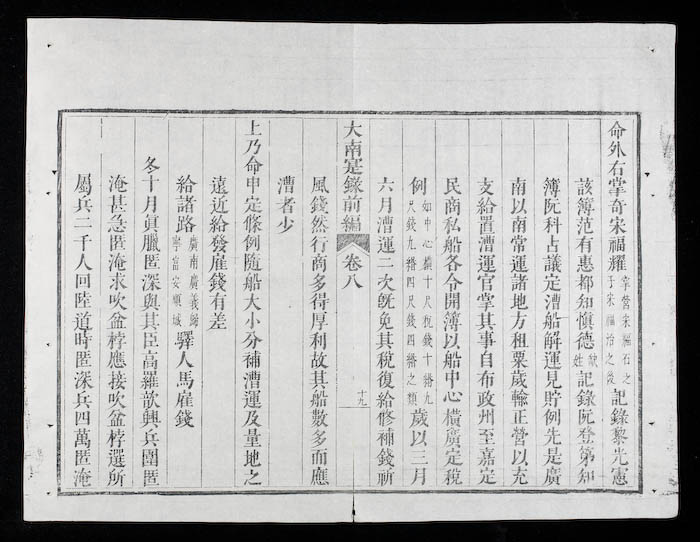 命外右掌奇宋福耀掌營宋福石之子宋福治之後記錄黎光憲
該簿范有惠都知慎德缺姓記錄阮登第知
簿阮科占議定漕船解運見貯例先是廣
南以南常運諸地方租粟歲輸正營以充
支給置漕運官掌其事自布政州至嘉定
民商私船各令開簿以船中心橫廣定稅
例如中心橫十尺稅錢十緡九尺錢九緡四尺錢四緡之類歲以三月
六月漕運二次旣免其稅復給修補錢祈
大南寔錄前編 卷八 十九
風錢然行商多得厚利故其船數多而應
漕者少
上乃命申定條例隨船大小分補漕運及量地之
遠近給發雇錢有差
給諸路廣南廣義歸寧富安順城驛人馬雇錢
冬十月眞臘匿深與其臣高羅歆興兵圍匿
淹甚急匿淹求吹盆桲應接吹盆桲選所
屬兵二千人回陸道時匿深兵四萬匿淹